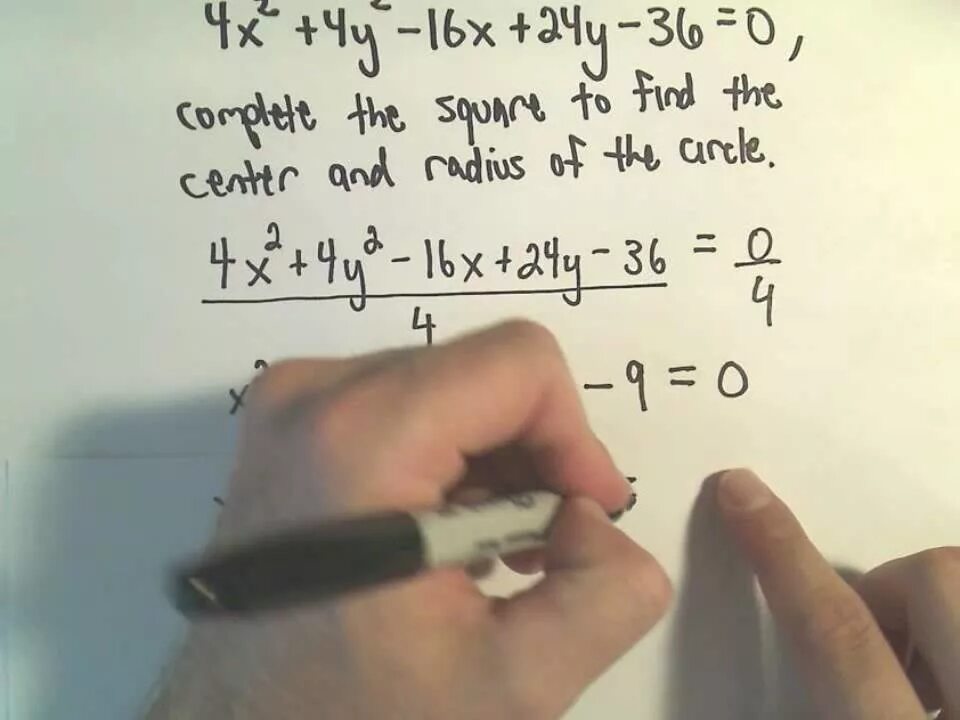 4x² + 4y² - 16x + 24y - 36 = 0,
complete the square to find the
center and radius of the circle.
4x² + 4y² - 16x + 24y - 36 = 0
4 4
x² - 9 = 0